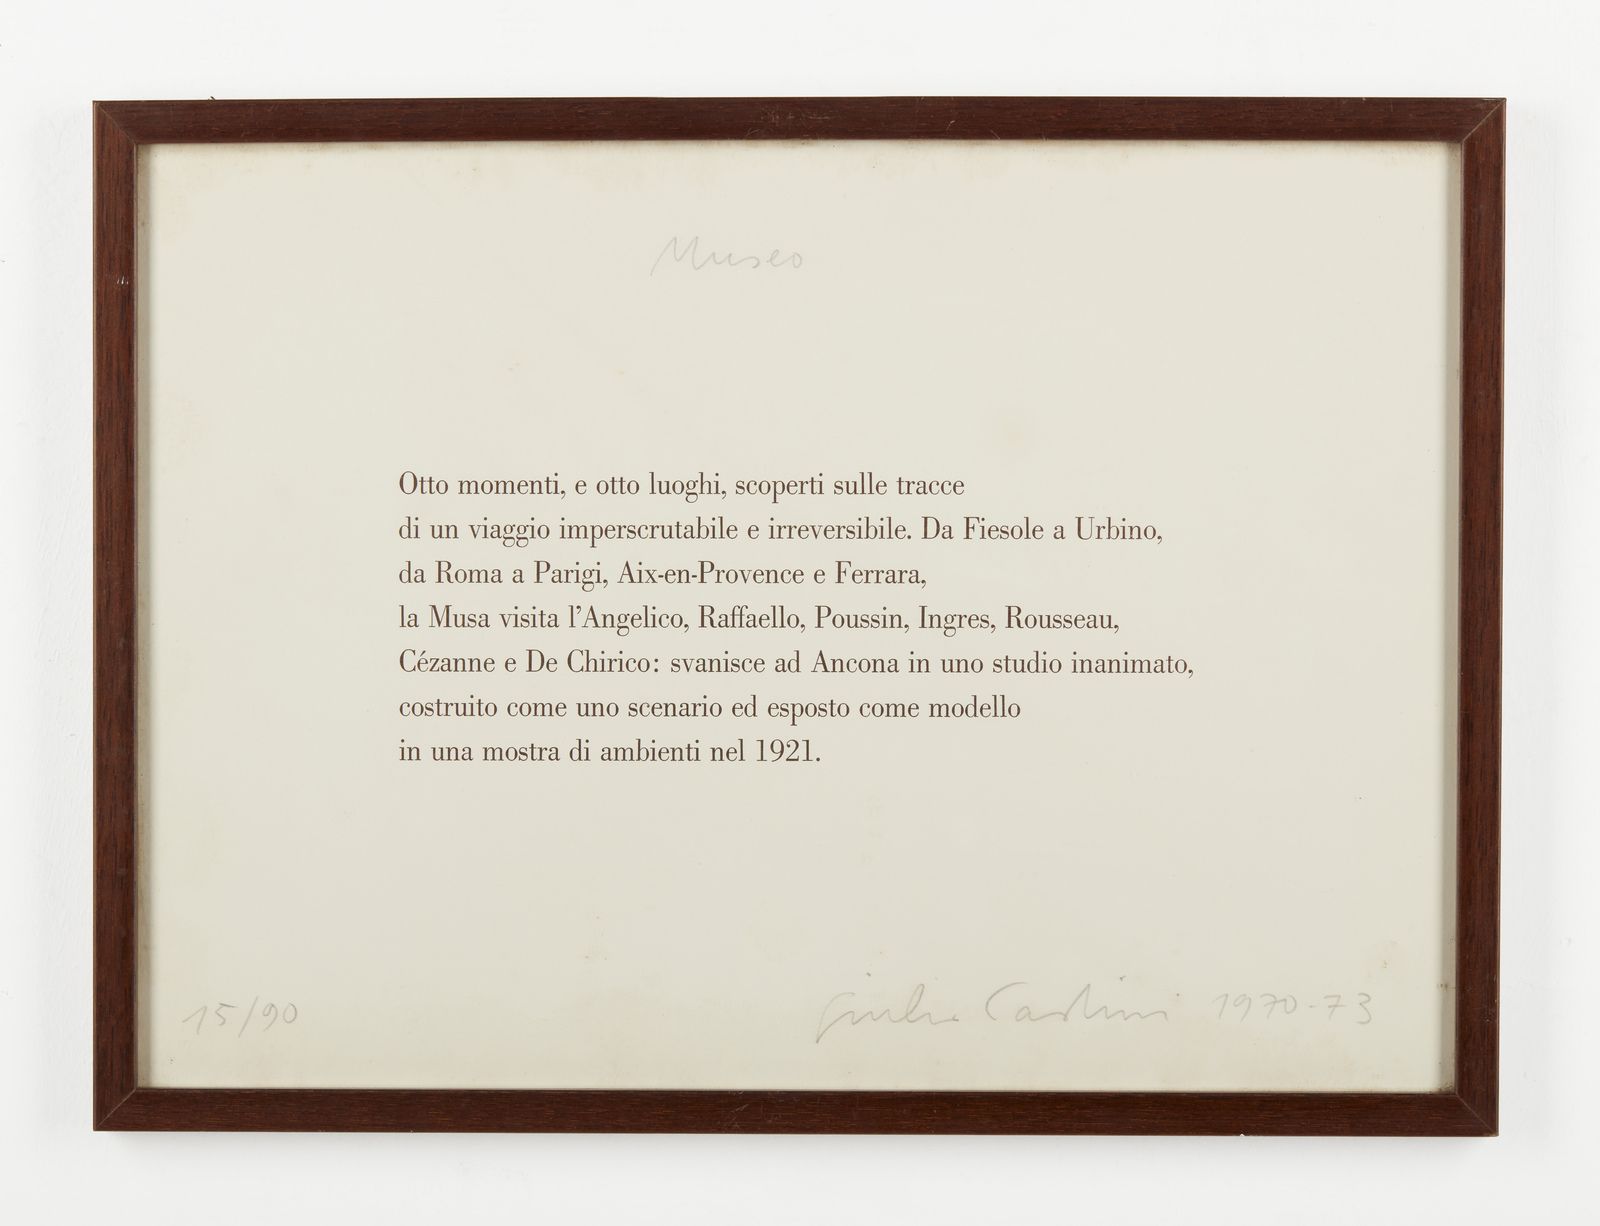 Museo
Otto momenti, e otto luoghi, scoperti sulle tracce
di un viaggio imperscrutabile e irreversibile. Da Fiesole a Urbino,
da Roma a Parigi, Aix-en-Provence e Ferrara,
la Musa visita l'Angelico, Raffaello, Poussin, Ingres, Rousseau,
Cézanne e De Chirico: svanisce ad Ancona in uno studio inanimato,
costruito come uno scenario ed esposto come modello
in una mostra di ambienti nel 1921.
15/90
Giulio Paolini 1970-73